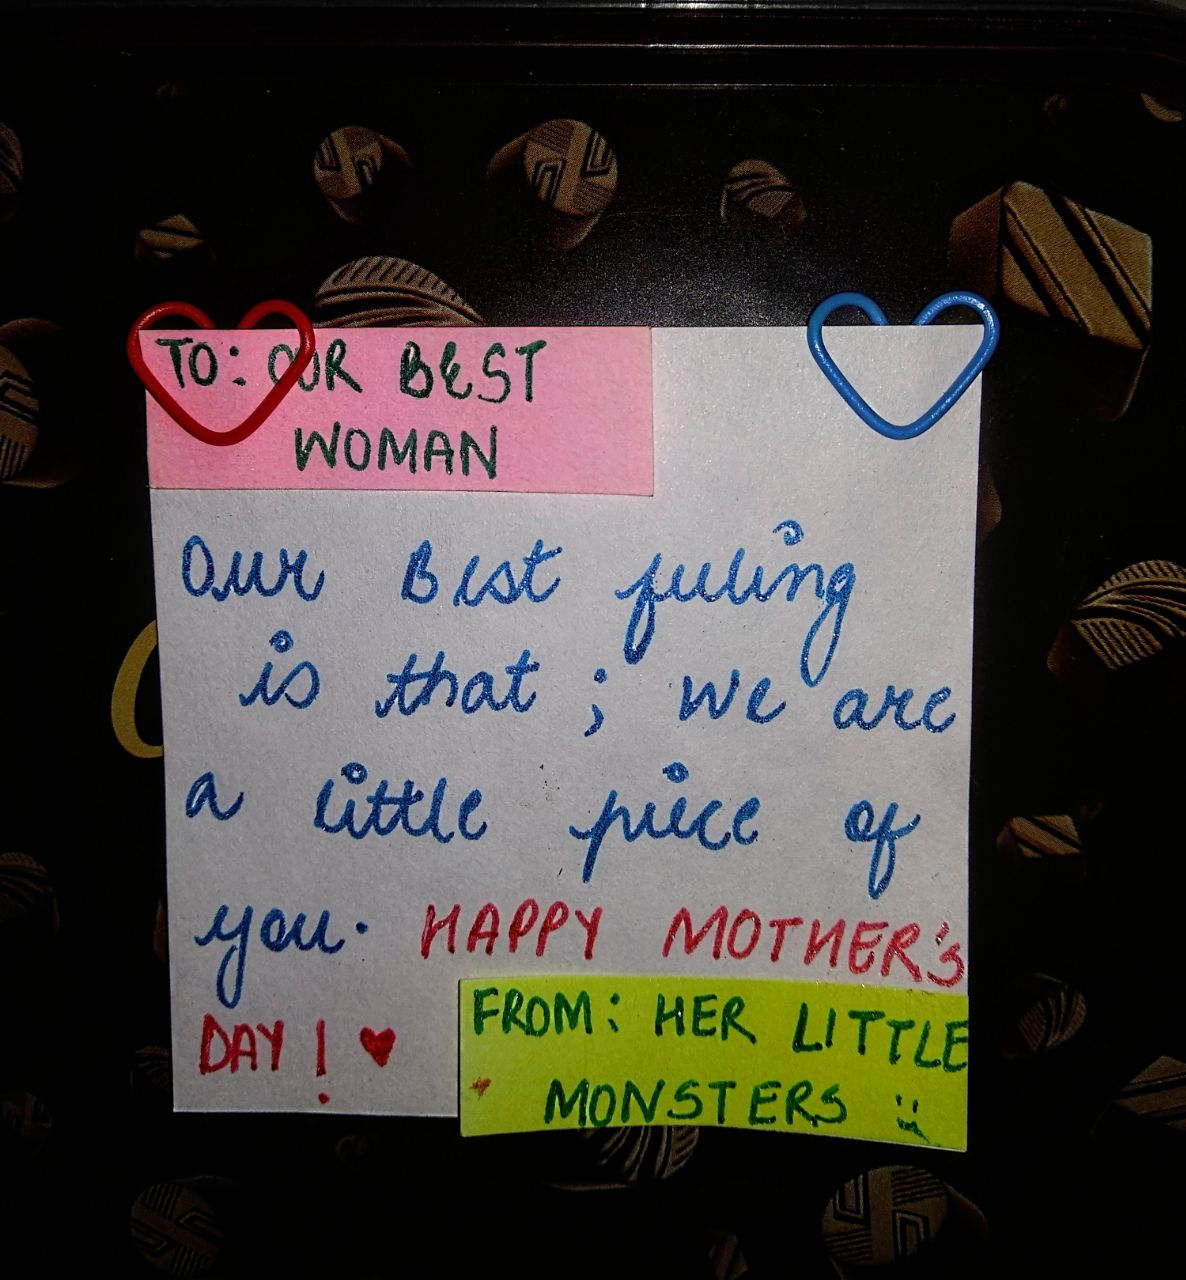 TO: OUR BEST
WOMAN
Our Best feeling
is that ; we are
a little piece of
you. HAPPY MOTHER'S
DAY ! ♥
FROM: HER LITTLE
MONSTERS